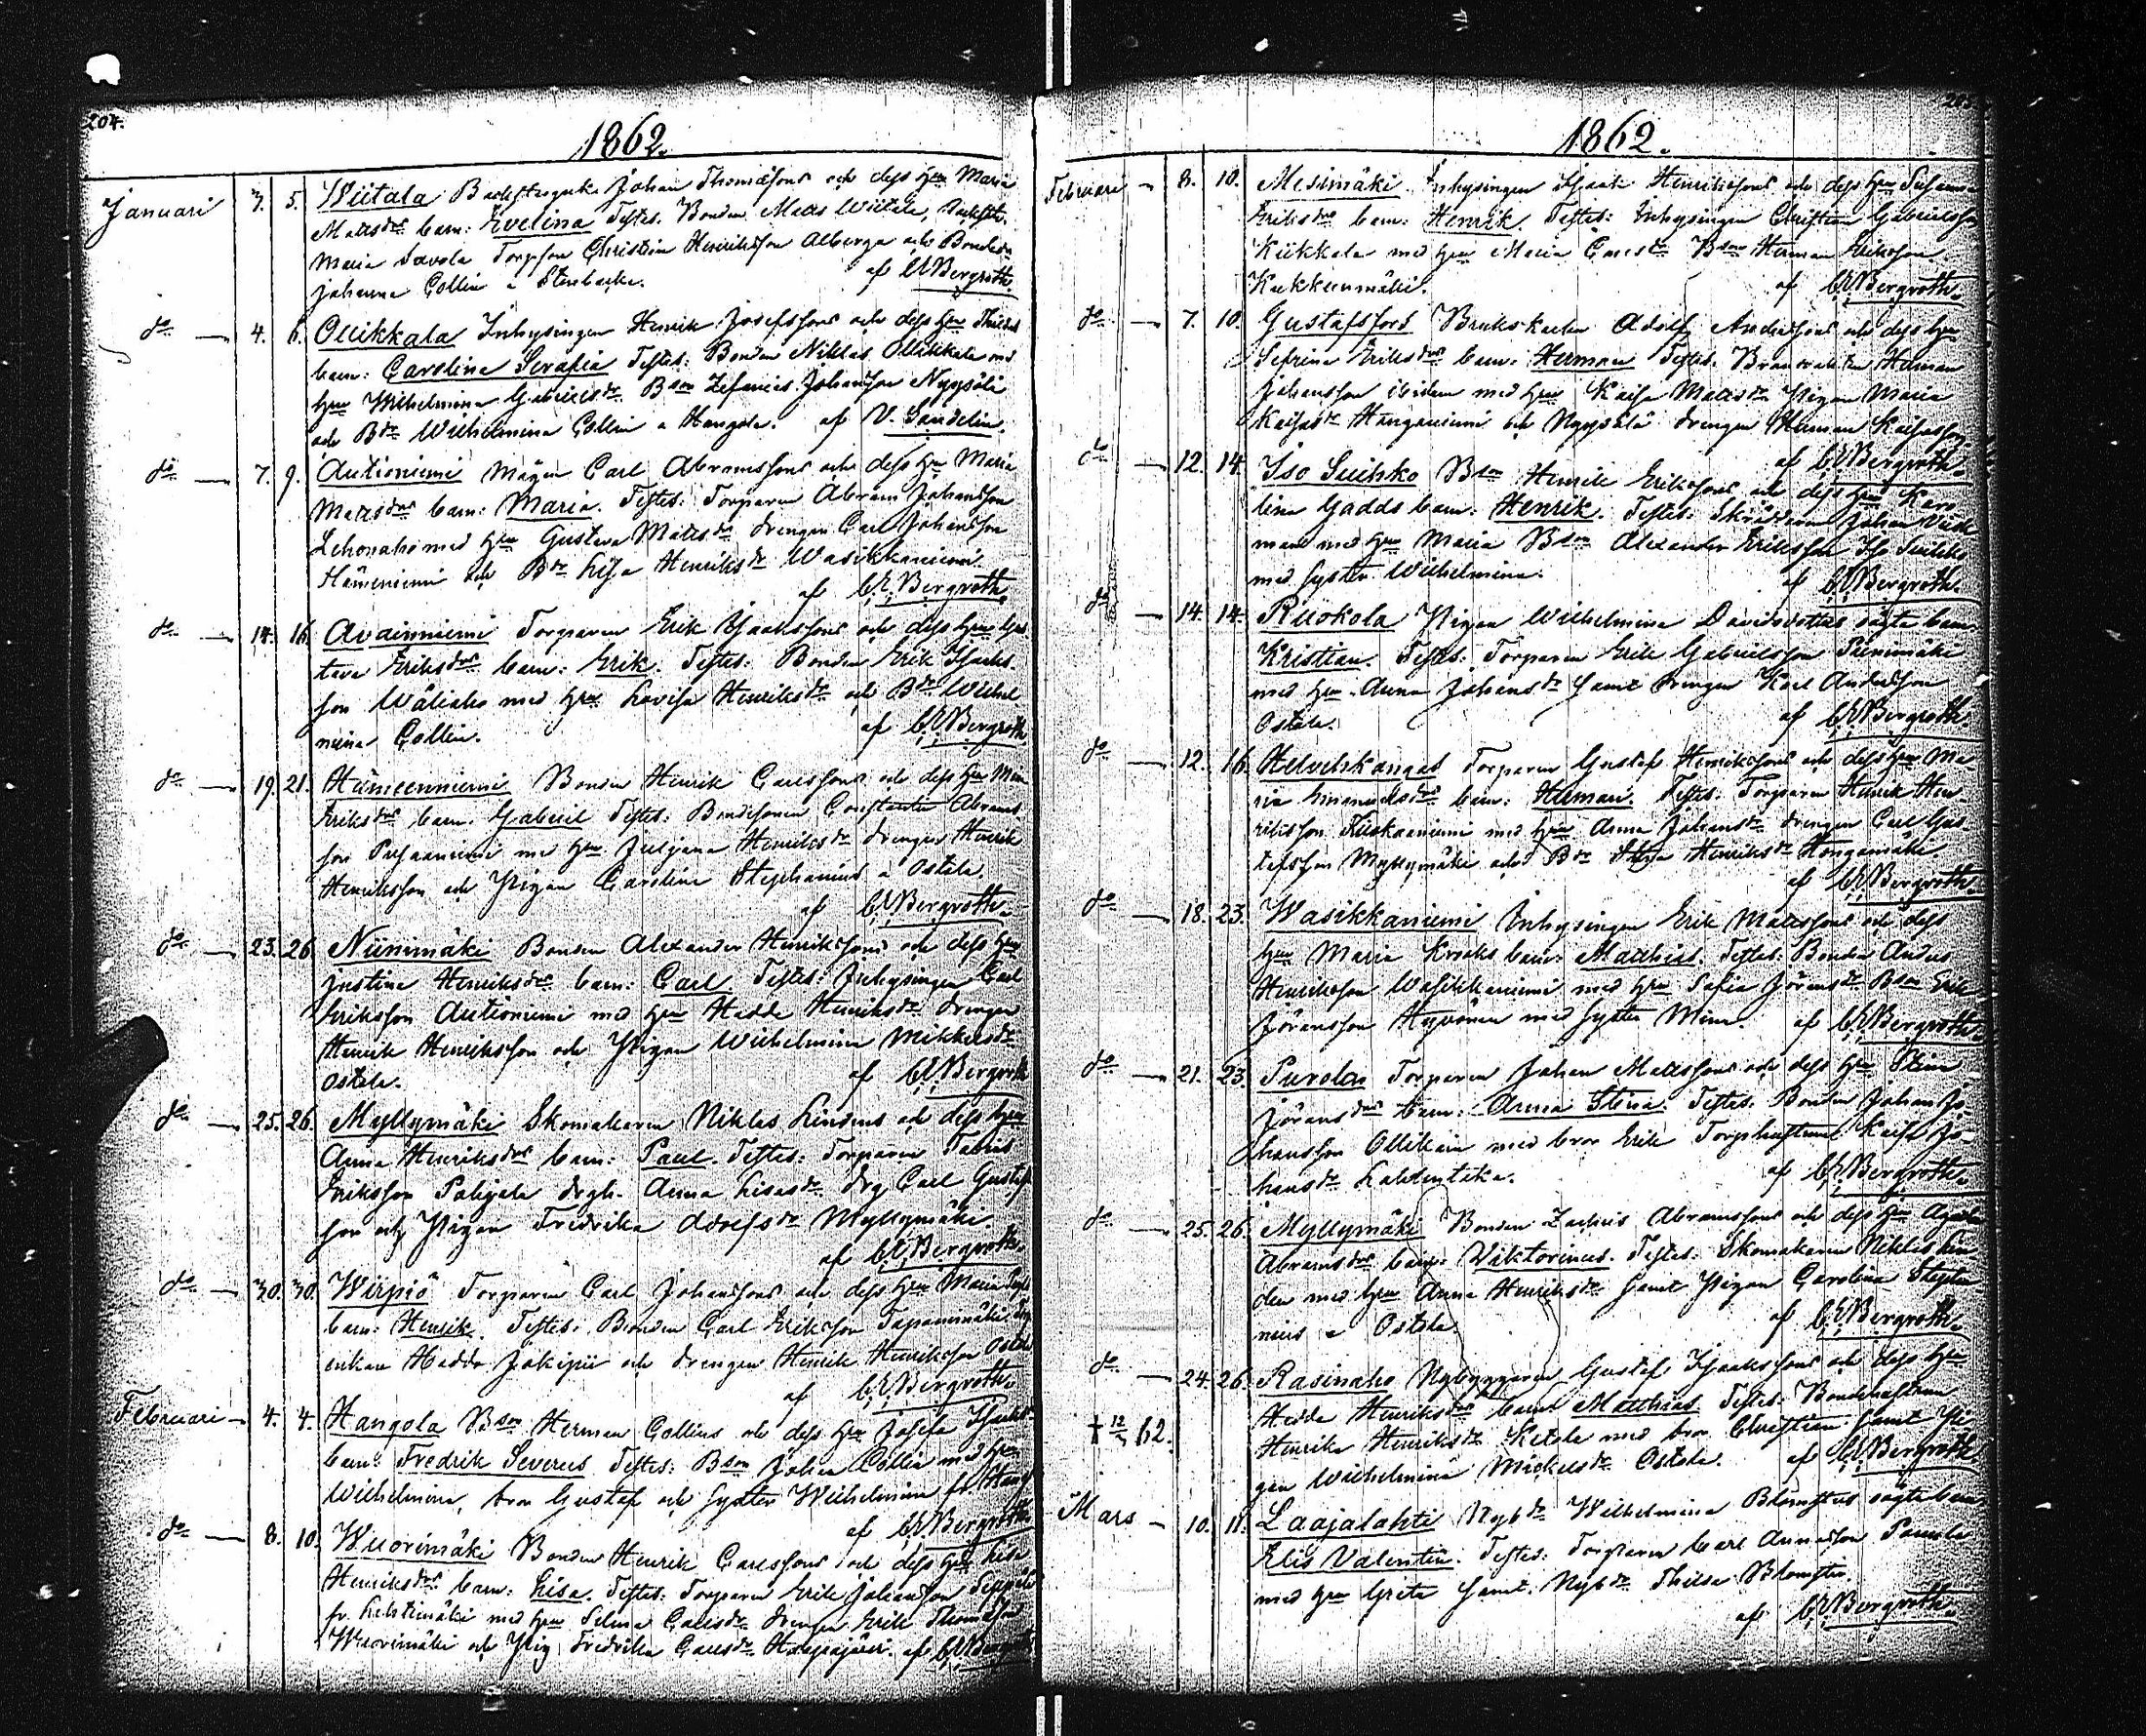 204.
1862.
Januari 3. 5. Wiitala Backstuguk. Johan Thomæssons och dess hru Maria
Matts drs barn: Evelina Testes: Bonden Matts Wiitala,
Maria Savola Torpson Christian Henriksson Alberga och Bonded.
Johanna Collin a Stenbacka. af C.E. Bergroth.
do 4. 6. Ollikkala Inhysingen Henrik Josefssons och dess hru
barn: Carolina Serafia Testes: Bonden Niklas Ollikkala med
hru Wilhelmina Gabrielsdr. Bson Zefanias Johansson Nyysölä
och Bdr Wilhelmina Collin a Hangola. af V. Sandelin.
do 7. 9. Autioniemi Mågen Carl Abramssons och dess hru Maria
Matts drs barn: Maria. Testes: Torparen Abram Johansson
Lehonaho med hru Gustava Mattsdr drengen Carl Johansson
Hämeniemi och Bdr Lisa Henriksdr Wasikkaniemi.
af C.E. Bergroth.
do 14. 16. Avainniemi Torparen Erik Isaakssons och dess hru Gus
tava Eriks drs barn: Erik. Testes: Bonden Erik Isaks
son Wäliaho med hru Lovisa Henriksdr och Bdr Wilhel
mina Collin. af C.E. Bergroth
do 19. 21. Hämeenniemi Bonden Henrik Carlssons och dess hru
Eriks drs barn: Gabriel Testes: Bondesonen Constantin Abrams
son med hru Juljana Henriksdr drengen Henrik
Henriksson och Pigan Carolina Stephanius a Ostola.
af C.E. Bergroth.
do 23. 26. Niinimäki Bonden Alexander Henrikssons och dess hru
Justina Henriksdrs barn: Carl. Testes: Inhysingen Carl
Eriksson Autioniemi med hru Hedda Henriksdr drengen
Henrik Henriksson och Pigan Wilhelmina Mikkelsdr
Ostola. af C.E. Bergroth
do 25. 26. Myllymäki Skomakaren Niklas Lindens och dess hru
Anna Henriksdrs barn: Paul. Testes: Torparen
Eriksson Pohjola Anna Lisasdr drg Carl Gustafs
son och Pigan Fredrika Adolfsdr Myllymäki
af C.E. Bergroth.
do 30. 30. Wirpiö Torparen Carl Johanssons och dess hru Maria
barn: Henrik. Testes: Bonden Carl Eriksson Tapanimäki
enkan Hedda Jokipii och drengen Henrik Henriksson Ostola
af C.E. Bergroth.
Februari 4. 4. Hangola Bson Herman Collins och dess hru Josefa
barn: Fredrik Severus Testes: Bson Johan Collin med hru
Wilhelmina, bror Gustaf och syster Wilhelmina fr. Hang
af C.E. Bergroth
do 8. 10. Wuorimäki Bonden Henrik Carlssons och dess hru Lisa
Henriksdrs barn: Lisa. Testes: Torparen Erik Johansson
fr. med hru Selma Carlsdr drengen Erik Thomasson
Wuorimäki och Pig Fredrika Carlsdr Haapajärvi. af C.E. Bergroth
205
1862.
Februari 8. 10. Mesimäki Inhysingen Isaak Henrikssons och dess hru Susanna
Eriksdrs barn: Henrik. Testes: Inhysingen Christian Gabrielsson
Kiikkala med hru Maria Carlsdr Bson Herman Eriksson
Kukkunmäki. af C.E. Bergroth.
do 7. 10. Gustafsfors Brukskarlen Adolf Anderssons och dess hru
Sefrina Eriksdrs barn: Herman Testes: Herman
Johansson ibidem med hru Kaisa Mattsdr Pigan Maria
Kaisasdr Hanganiemi och Nyysölä drengen Herman Kaisasson
af C.E. Bergroth.
do 12. 14. Iso Suihko Bson Henrik Erikssons och dess hru Karo
lina Gadds barn: Henrik. Testes: Skräddaren Johan
man med hru Maria Bson Alexander Eriksson Iso Suihko
med syster Wilhelmina. af C.E. Bergroth.
do 14. 14. Ruokola Pigan Wilhelmina Davidsdotters oägta barn:
Kristian. Testes: Torparen Erik Gabrielsson Niinimäki
med hru Anna Johansdr samt drengen Karl Andersson
Ostola. af C.E. Bergroth
do 12. 16. Helvehkangas Torparen Gustaf Henrikssons och dess hru Ma-
ria Emanuelsdrs barn: Herman. Testes: Torparen Henrik Hen-
riksson Kiiskaniemi med hru Anna Johansdr drengen Carl Gus-
tafsson Myllymäki och Bdr Lisa Henriksdr Hongamäki.
af C.E. Bergroth.
do 18. 23. Wasikkaniemi Inhysingen Erik Mattssons och dess
hru Maria Kroks barn: Matthias. Testes: Bonden Anders
Henriksson Wasikkaniemi med hru Sofia Jöransdr Bson Erik
Jöransson Hyvönen med syster Mina. af C.E. Bergroth.
do 21. 23. Purola Torparen Johan Mattssons och dess hru Stina
Jöransdrs barn: Anna Stina. Testes: Bonden Johan Jo-
hansson Ollikain med bror Erik Torphustrun Kaisa Jo-
hansdr Lahdentaka. af C.E. Bergroth.
do 25. 26. Myllymäki Bonden Zachris Abramssons och dess hru
Abramsdrs barn: Viktorinus. Testes: Skomakaren Niklas Lin
den med hru Anna Henriksdr samt Pigan Carolina Stepha
nius a Ostola. af C.E. Bergroth.
do 24. 26. Rasinaho Nybyggaren Gustaf Isaakssons och dess hru
Hedda Henriksdrs barn Matthias Testes: Bondehustrun
† 12/3 62. Henrika Henriksdr Ketola med bror Christian samt Pi-
gan Wilhelmina Mickelsdr Ostola. af C.E. Bergroth
Mars 10. 11. Laajalahti Nybdr Wilhelmina Blomsters oägta barn
Elis Valentin. Testes: Torparen Carl Annasson
med hru Greta samt Nybdr Thilda Blomster.
af C.E. Bergroth.